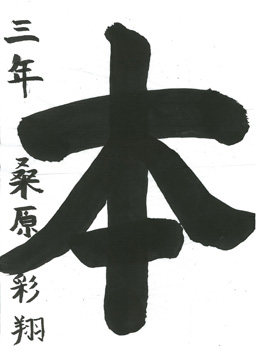 本
三年 桑原彩翔